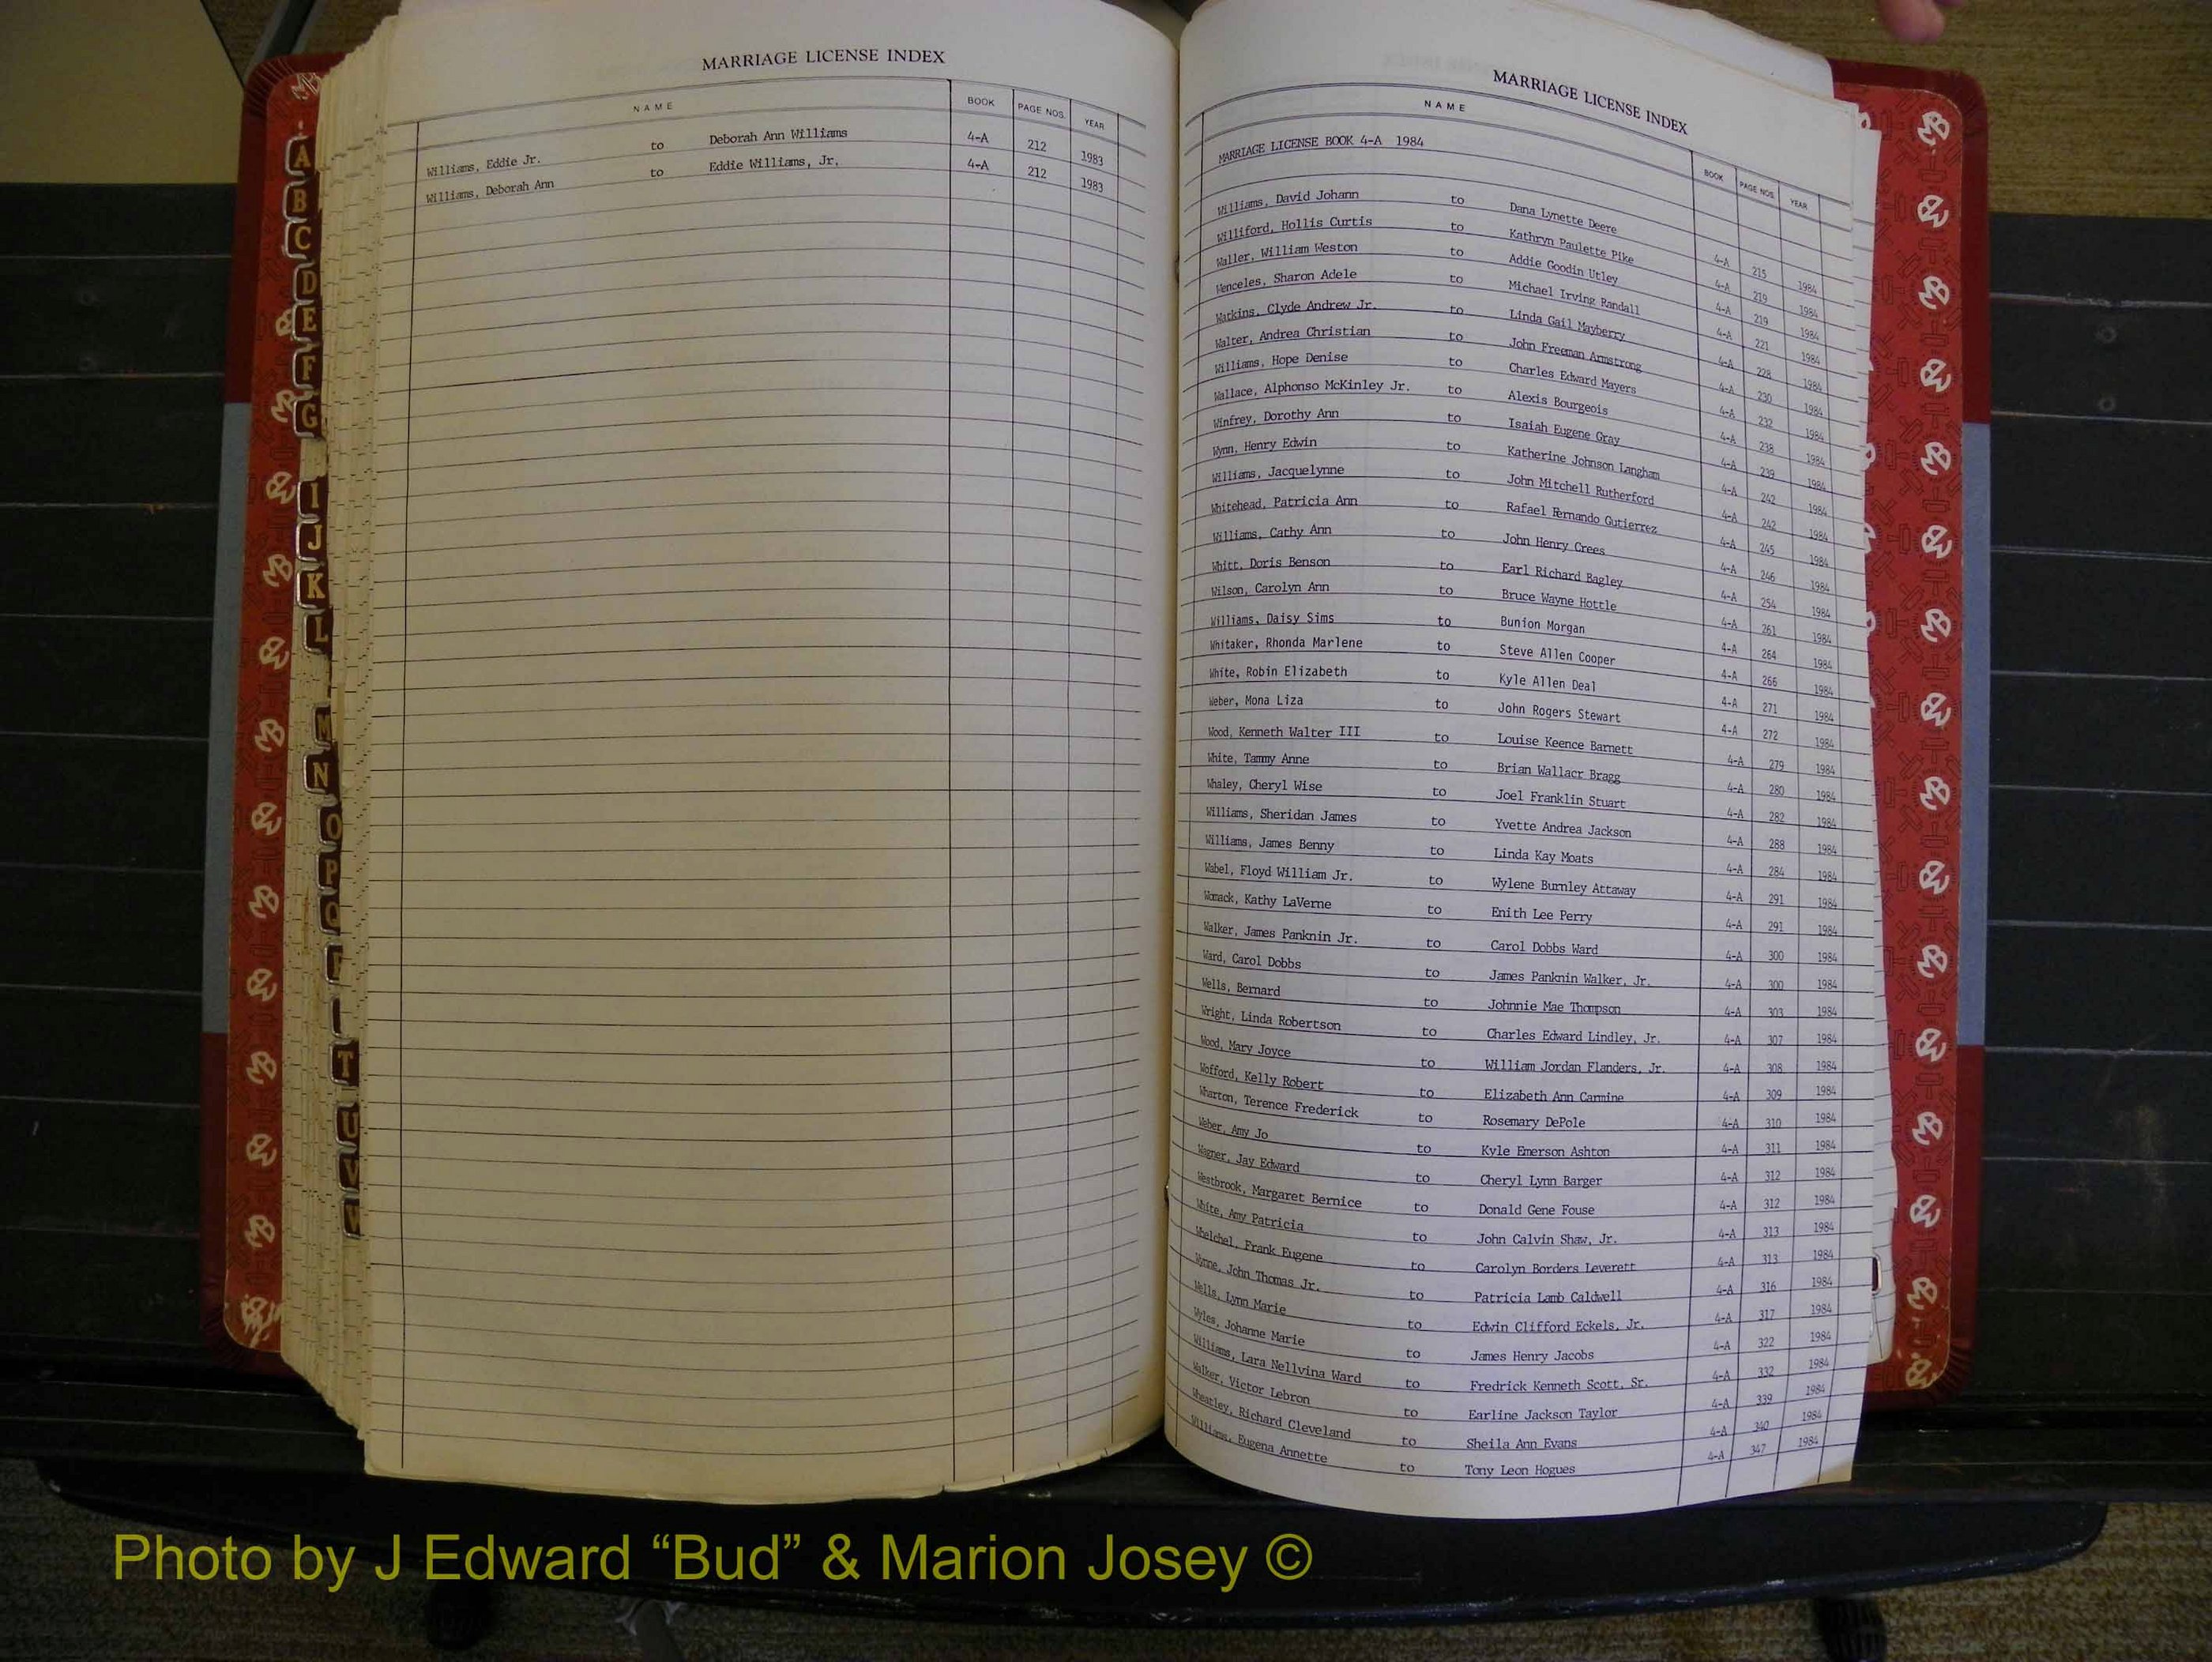 MARRIAGE LICENSE INDEX
NAME BOOK PAGE NOS. YEAR
Williams, Eddie Jr. to Deborah Ann Williams 4-A 212 1983
Williams, Deborah Ann to Eddie Williams, Jr. 4-A 212 1983
A
B
C
D
E
F
G
I
J
K
L
M
N
O
P
Q
T
U
V
W
MARRIAGE LICENSE INDEX
NAME BOOK PAGE NOS. YEAR
MARRIAGE LICENSE BOOK 4-A 1984
Williams, David Johann to Dana Lynette Deere 4-A 215 1984
Williford, Hollis Curtis to Kathryn Paulette Pike 4-A 219 1984
Waller, William Weston to Addie Goodin Utley 4-A 219 1984
Wenceles, Sharon Adele to Michael Irving Randall 4-A 221 1984
Watkins, Clyde Andrew Jr. to Linda Gail Mayberry 4-A 228 1984
Walter, Andrea Christian to John Freeman Armstrong 4-A 230 1984
Williams, Hope Denise to Charles Edward Mayers 4-A 232 1984
Wallace, Alphonso McKinley Jr. to Alexis Bourgeois 4-A 238 1984
Winfrey, Dorothy Ann to Isaiah Eugene Gray 4-A 239 1984
Wynn, Henry Edwin to Katherine Johnson Langham 4-A 242 1984
Williams, Jacquelynne to John Mitchell Rutherford 4-A 242 1984
Whitehead, Patricia Ann to Rafael Fernando Gutierrez 4-A 245 1984
Williams, Cathy Ann to John Henry Crees 4-A 246 1984
Whitt, Doris Benson to Earl Richard Bagley 4-A 254 1984
Wilson, Carolyn Ann to Bruce Wayne Hottle 4-A 261 1984
Williams, Daisy Sims to Bunion Morgan 4-A 264 1984
Whitaker, Rhonda Marlene to Steve Allen Cooper 4-A 266 1984
White, Robin Elizabeth to Kyle Allen Deal 4-A 271 1984
Weber, Mona Liza to John Rogers Stewart 4-A 272 1984
Wood, Kenneth Walter III to Louise Keence Barnett 4-A 279 1984
White, Tammy Anne to Brian Wallacr Bragg 4-A 280 1984
Whaley, Cheryl Wise to Joel Franklin Stuart 4-A 282 1984
Williams, Sheridan James to Yvette Andrea Jackson 4-A 288 1984
Williams, James Benny to Linda Kay Moats 4-A 284 1984
Wabel, Floyd William Jr. to Wylene Burnley Attaway 4-A 291 1984
Womack, Kathy LaVerne to Enith Lee Perry 4-A 291 1984
Walker, James Panknin Jr. to Carol Dobbs Ward 4-A 300 1984
Ward, Carol Dobbs to James Panknin Walker, Jr. 4-A 300 1984
Wells, Bernard to Johnnie Mae Thompson 4-A 303 1984
Wright, Linda Robertson to Charles Edward Lindley, Jr. 4-A 307 1984
Wood, Mary Joyce to William Jordan Flanders, Jr. 4-A 308 1984
Wofford, Kelly Robert to Elizabeth Ann Carmine 4-A 309 1984
Wharton, Terence Frederick to Rosemary DePole 4-A 310 1984
Weber, Amy Jo to Kyle Emerson Ashton 4-A 311 1984
Wagner, Jay Edward to Cheryl Lynn Barger 4-A 312 1984
Westbrook, Margaret Bernice to Donald Gene Fouse 4-A 312 1984
White, Amy Patricia to John Calvin Shaw, Jr. 4-A 313 1984
Whelchel, Frank Eugene to Carolyn Borders Leverett 4-A 313 1984
Wynne, John Thomas Jr. to Patricia Lamb Caldwell 4-A 316 1984
Wells, Lynn Marie to Edwin Clifford Eckels, Jr. 4-A 317 1984
Wyles, Johanne Marie to James Henry Jacobs 4-A 322 1984
Williams, Lara Nellvina Ward to Fredrick Kenneth Scott, Sr. 4-A 332 1984
Walker, Victor Lebron to Earline Jackson Taylor 4-A 339 1984
Wheatley, Richard Cleveland to Sheila Ann Evans 4-A 340 1984
Williams, Eugena Annette to Tony Leon Hogues 4-A 347 1984
Photo by J Edward “Bud” & Marion Josey ©